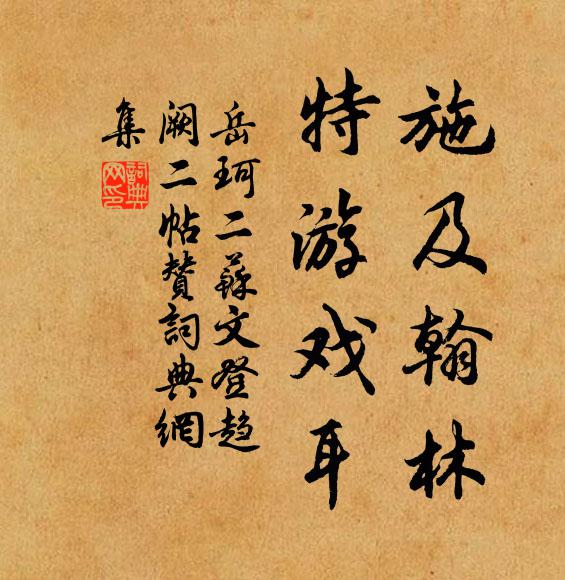 施及翰林
特游戏耳
岳珂二蘇文登趋
阙二帖赞詞典網
集
詞典
网印